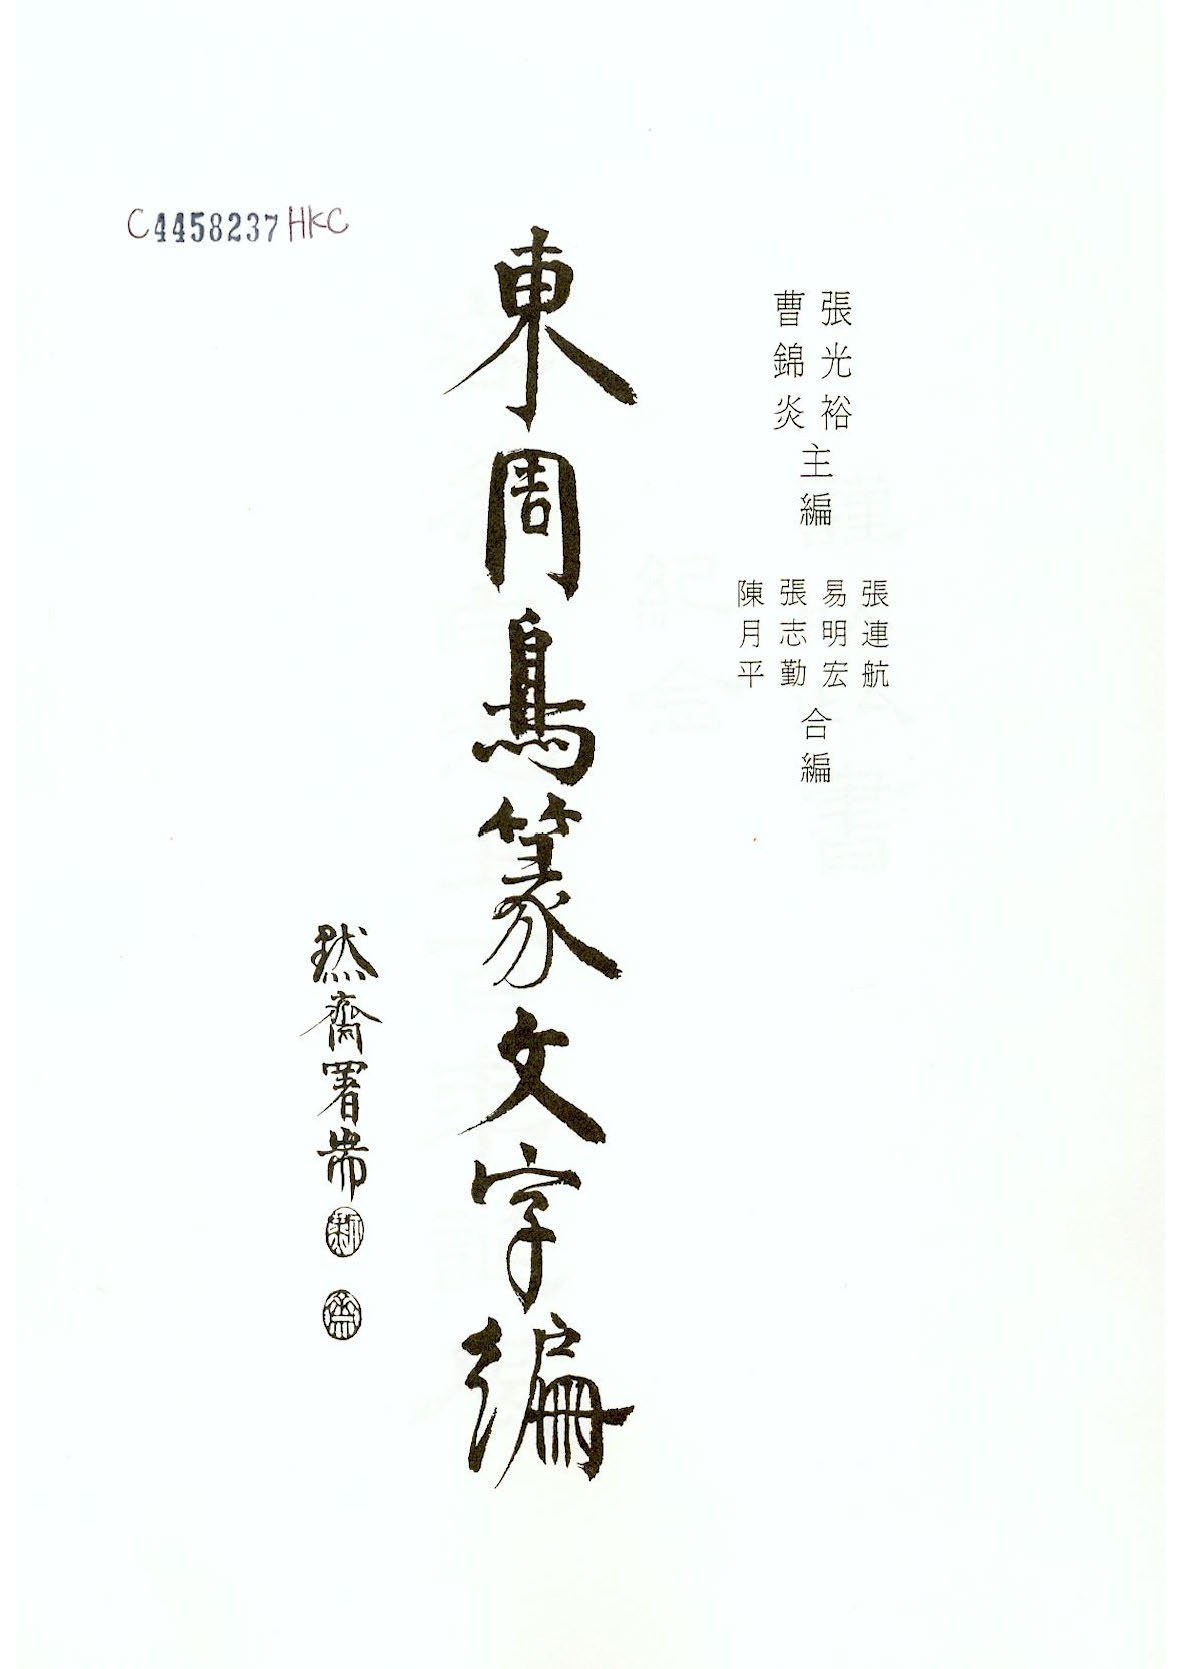 張光裕
曹錦炎
主編
張連航
易明宏
張志勤
陳月平
合編
東周鳥篆文字編
黙齋署耑
C4458237HKC